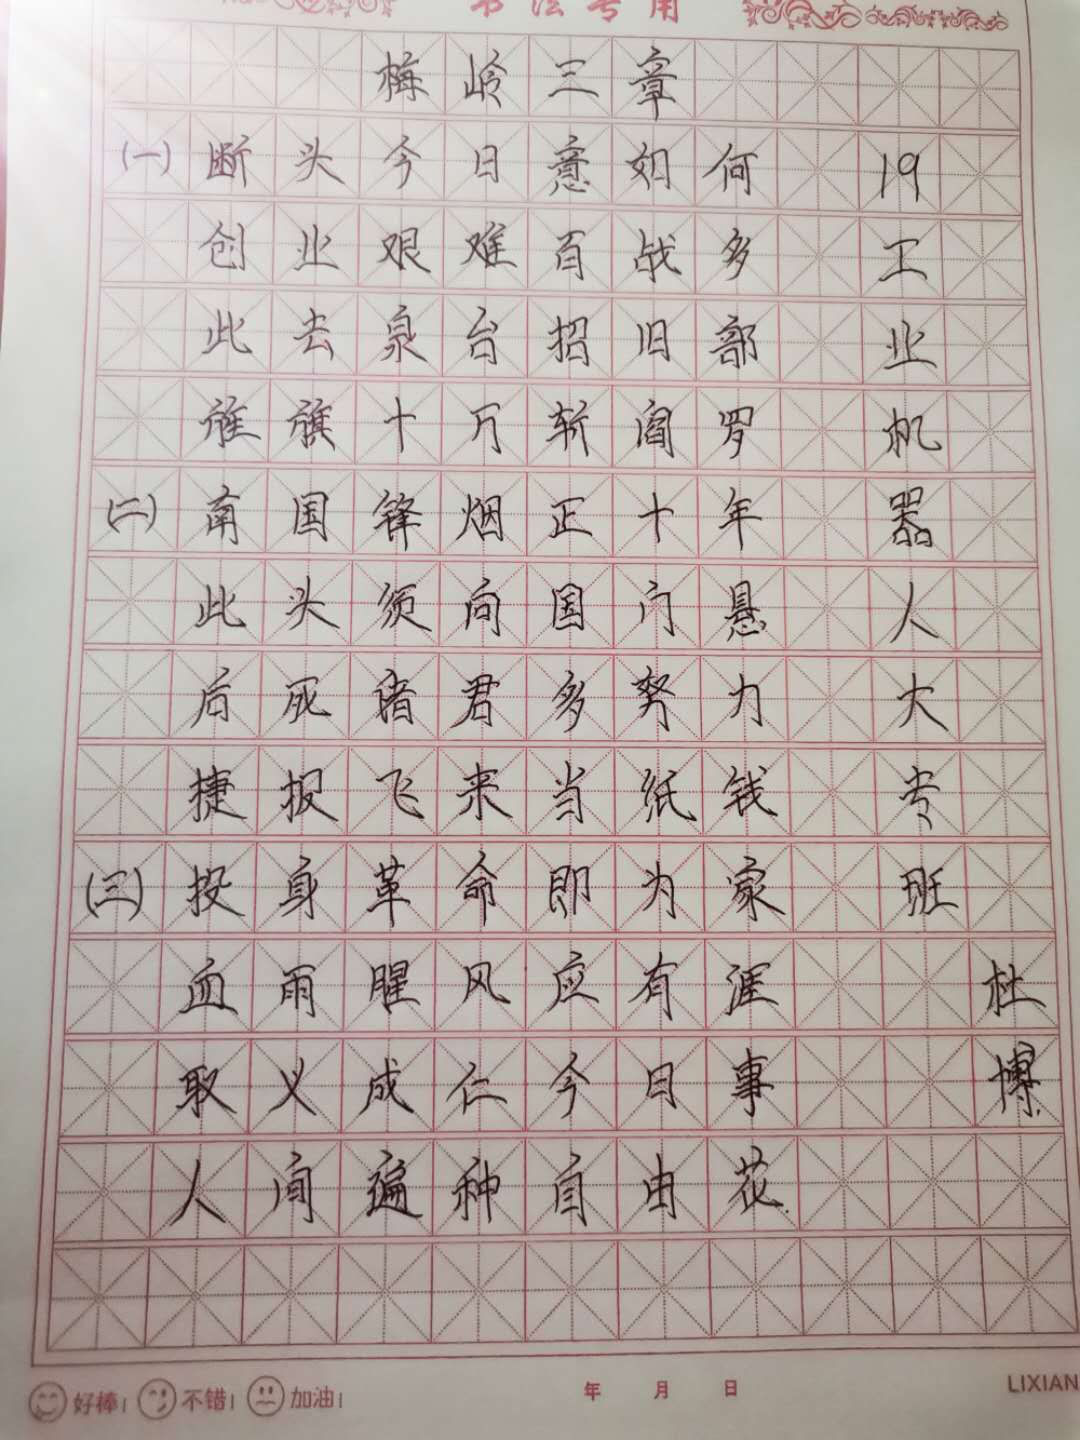 书法专用
梅岭三章
(一) 断头今日意如何
创业艰难百战多
此去泉台招旧部
旌旗十万斩阎罗
(二) 南国锋烟正十年
此头须向国门悬
后死诸君多努力
捷报飞来当纸钱
(三) 投身革命即为家
血雨腥风应有涯
取义成仁今日事
人间遍种自由花
19工业机器人大专班
杜博
好棒! 不错! 加油!
年 月 日
LIXIAN